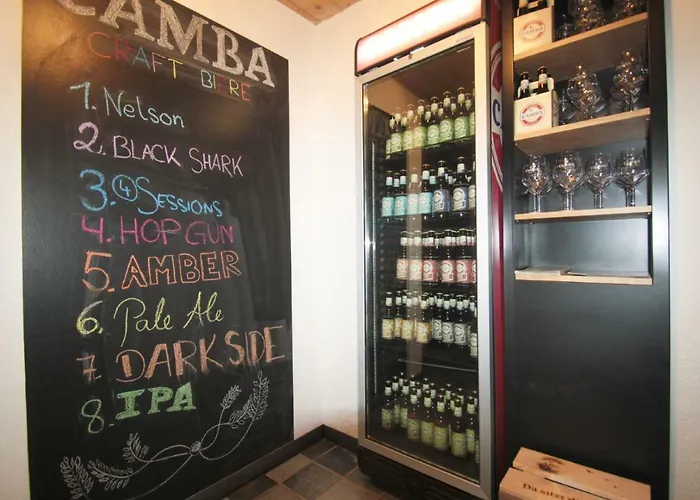 CAMBA
CRAFT BIERE
1. Nelson
2. BLACK SHARK
3. ④ SESSIONS
4. HOP GUN
5. AMBER
6. Pale Ale
7 DARKSIDE
8. IPA
CAMBA
CAMBA
Da